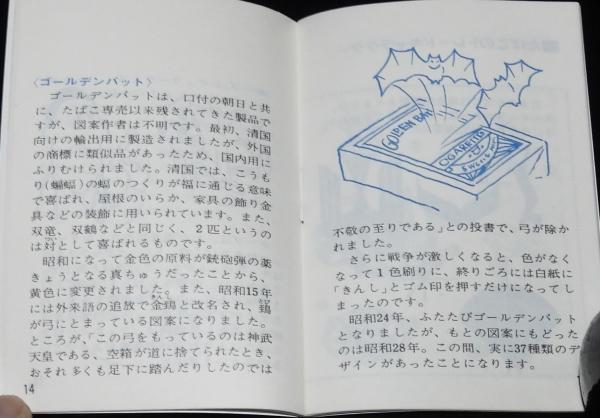 〈ゴールデンバット〉
ゴールデンバットは、口付の朝日と共
に、たばこ専売以来残されてきた製品で
すが、図案作者は不明です。最初、清国
向けの輸出用に製造されましたが、外国
の商標に類似品があったため、国内用に
ふりむけられました。清国では、こうも
り(蝙蝠)の蝠のつくりが福に通じる意味
で喜ばれ、屋根のいらか、家具の飾り金
具などの装飾に用いられています。また、
双竜、双鶴などと同じく、2匹というの
は対として喜ばれるものです。
昭和になって金色の原料が銃砲弾の薬
きょうとなる真ちゅうだったことから、
黄色に変更されました。また、昭和15年
には外来語の追放で金鵄と改名され、鵄
が弓にとまっている図案になりました。
ところが、「この弓をもっているのは神武
天皇である、空箱が道に捨てられたとき、
おそれ多くも足下に踏んだりしたのでは
14
GOLDEN BAT
CIGARETTES
SWEET &
不敬の至りである」との投書で、弓が除か
れました。
さらに戦争が激しくなると、色がなく
なって1色刷りに、終りごろには白紙に
「きんし」とゴム印を押すだけになってし
まったのです。
昭和24年、ふたたびゴールデンバット
となりましたが、もとの図案にもどった
のは昭和28年。この間、実に37種類のデ
ザインがあったことになります。